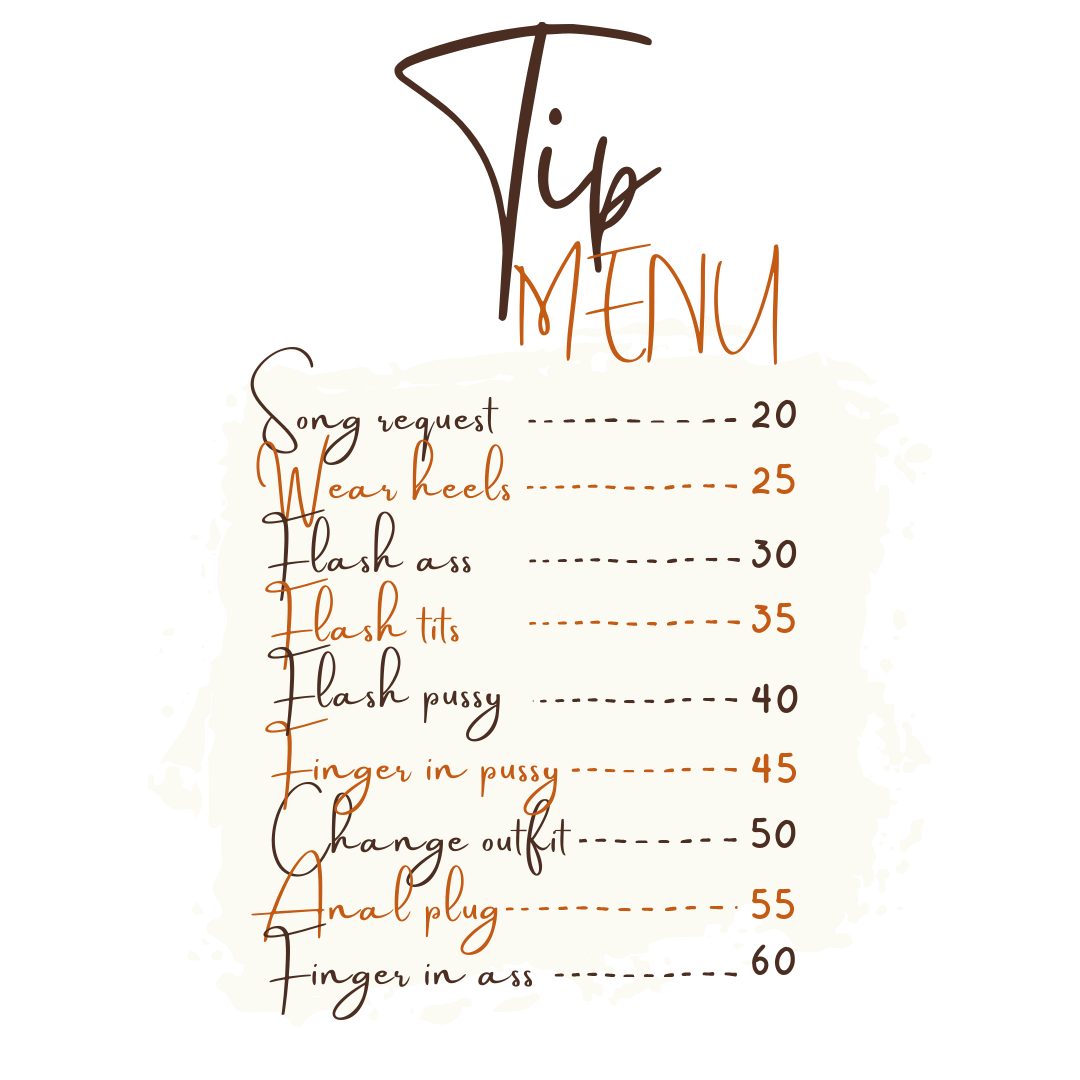 Tip
MENU
Song request ---------- 20
Wear heels ---------- 25
Flash ass ---------- 30
Flash tits ---------- 35
Flash pussy ---------- 40
Finger in pussy -------- 45
Change outfit -------- 50
Anal plug ----------- 55
Finger in ass --------- 60